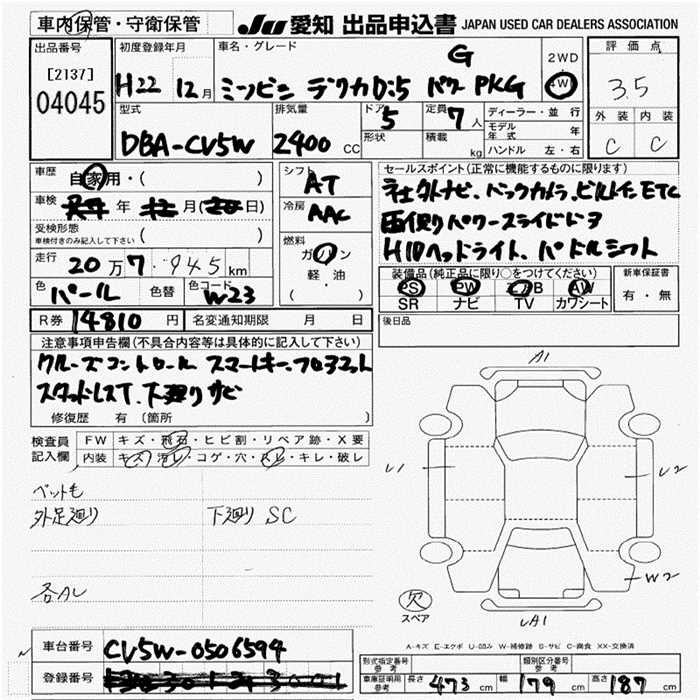 車内保管・守衛保管
JU 愛知 出品申込書 JAPAN USED CAR DEALERS ASSOCIATION
出品番号
[2137]
04045
初度登録年月
H22 12月
車名・グレード
G
ミツビシ デリカD:5 パワーPKG
2WD
4W
評価点
3.5
外装 内装
C C
型式
DBA-CV5W
排気量
2400 CC
ドア
5
形状
定員
7人
積載
kg
ディーラー・並行
モデル年式 年
ハンドル 左・右
車歴
自家用・( )
車検
年 月( 日)
受検形態
車検付きのみ記入して下さい ( )
走行
20万7.945km
色
パール
色替
色コード
W23
シフト
AT
冷房
AAC
燃料
ガソリン
軽・油
( )
セールスポイント(正常に機能するものに限ります)
両側パワースライドドア
HIDヘッドライト、パドルシフト
装備品(純正品に限り○をつけてください)
PS PW AW
SR ナビ TV カワシート
新車保証書
有・無
R券 14810円
名変通知期限 月 日
後日品
注意事項申告欄(不具合内容等は具体的に記入して下さい)
クルーズコントロール スマートキー フロアマット
スタッドレスT、下廻りサビ
修復歴 有 〔箇所 〕
検査員記入欄
FW キズ・飛石・ヒビ割・リペア跡・X要
内装 キズ・汚レ・コゲ・穴・スレ・キレ・破レ
外足廻り 下廻りSC
各AL
A1
U1
U2
W2
A1
欠
スペア
A-キズ E-エクボ U-凹み W-補修跡 S-サビ C-腐食 XX-交換済
車台番号 CV5W-0506594
登録番号
型式指定番号 参考
類別区分番号 参考
車庫証明用参考 長さ 473cm 幅 179cm 高さ 187cm